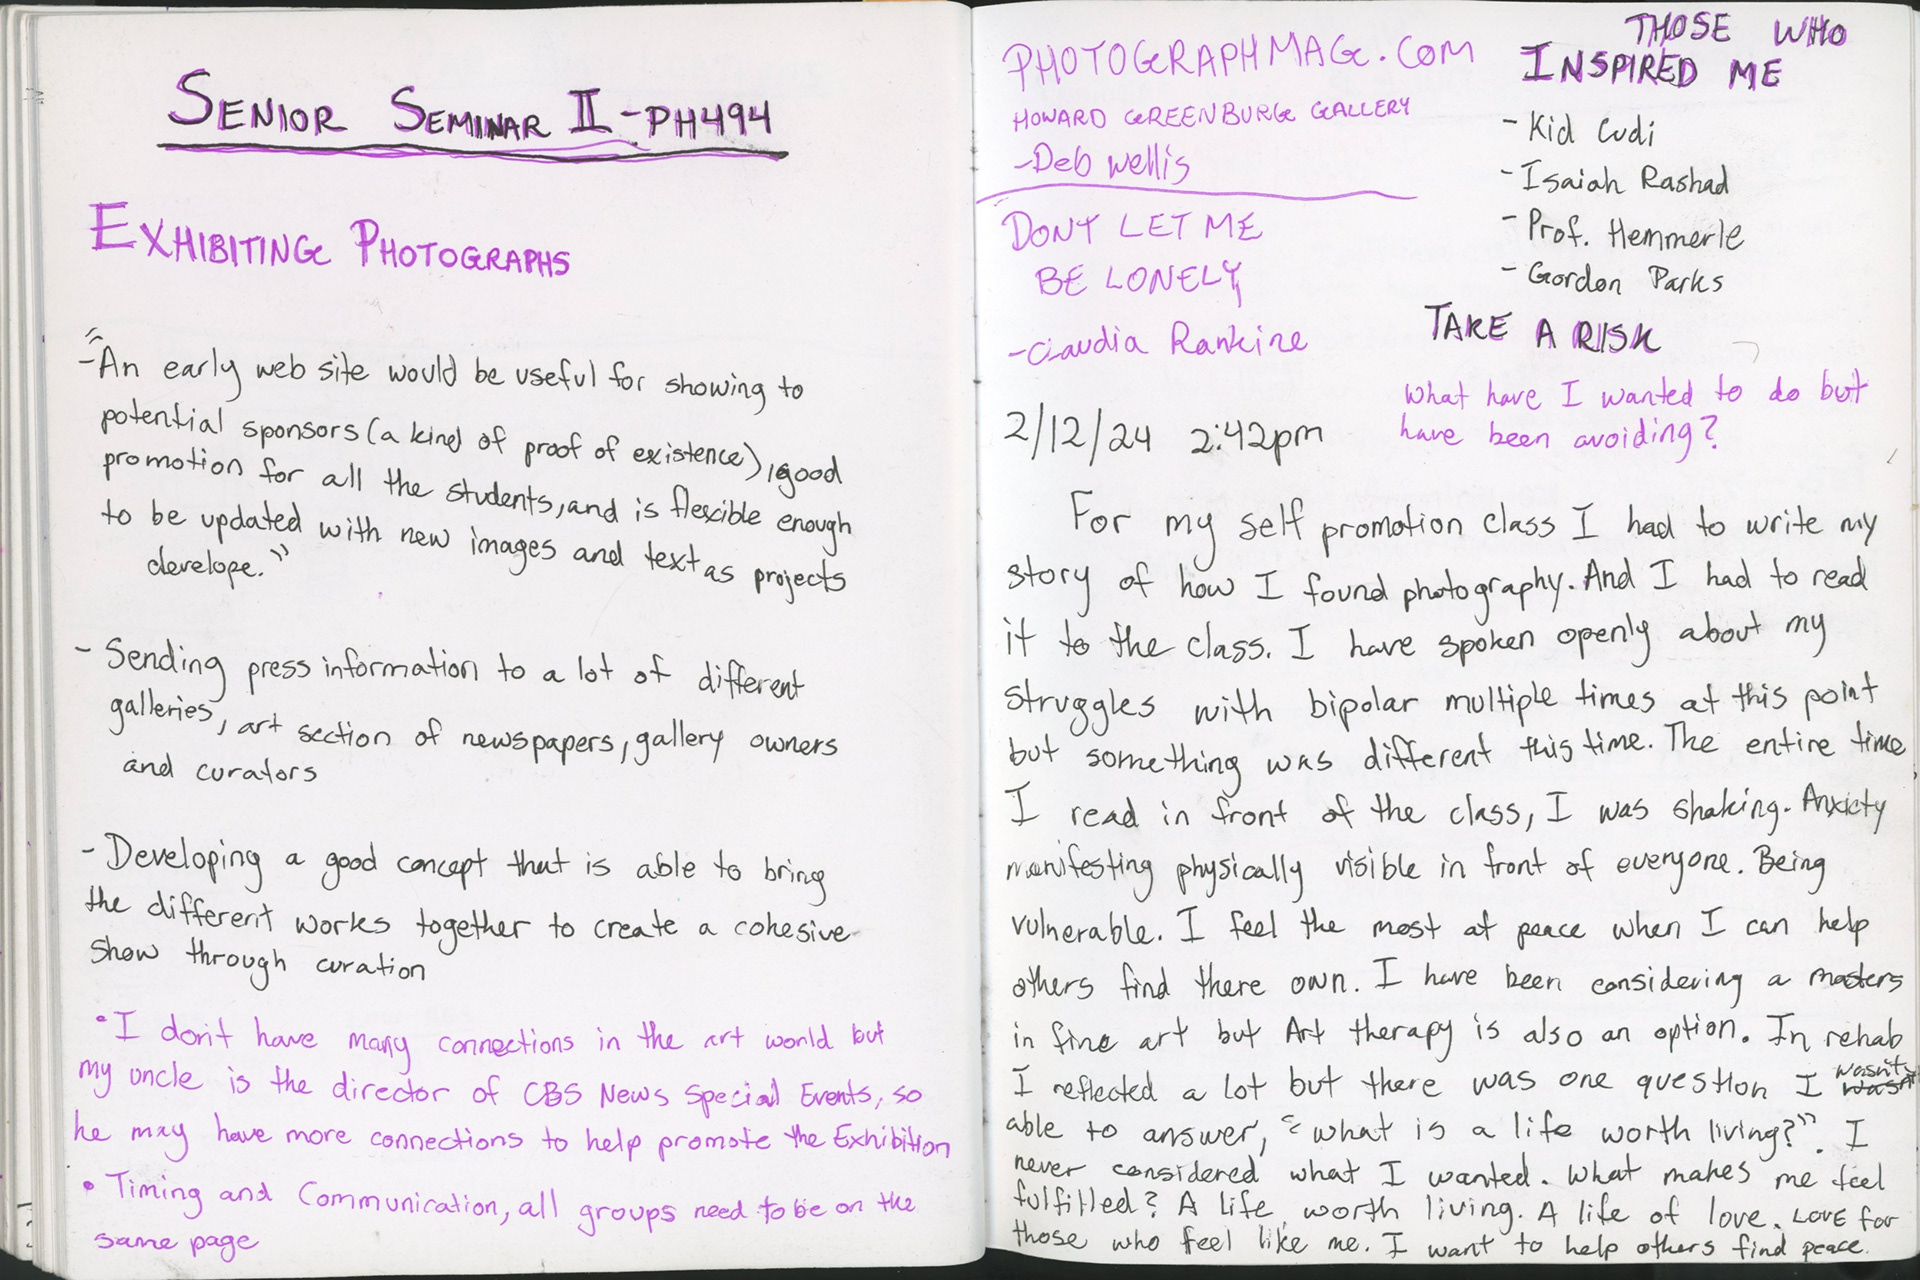 SENIOR SEMINAR II - PH494
EXHIBITING PHOTOGRAPHS
"
- An early web site would be useful for showing to
potential sponsors (a kind of proof of existence), good
promotion for all the students, and is flexible enough
to be updated with new images and text as projects
develope."
- Sending press information to a lot of different
galleries, art section of newspapers, gallery owners
and curators
- Developing a good concept that is able to bring
the different works together to create a cohesive
show through curation
• I don't have many connections in the art world but
my uncle is the director of CBS News Special Events, so
he may have more connections to help promote the Exhibition
• Timing and Communication, all groups need to be on the
same page
PHOTOGRAPHMAG.COM
HOWARD GREENBURG GALLERY
- Deb Wellis
DONT LET ME
BE LONELY
- Claudia Rankine
THOSE WHO
INSPIRED ME
- Kid Cudi
- Isaiah Rashad
- Prof. Hemmerle
- Gordon Parks
TAKE A RISK
What have I wanted to do but
have been avoiding?
2/12/24 2:42pm
For my self promotion class I had to write my
story of how I found photography. And I had to read
it to the class. I have spoken openly about my
struggles with bipolar multiple times at this point
but something was different this time. The entire time
I read in front of the class, I was shaking. Anxiety
manifesting physically visible in front of everyone. Being
vulnerable. I feel the most at peace when I can help
others find there own. I have been considering a masters
in fine art but Art therapy is also an option. In rehab
I reflected a lot but there was one question I wasn't
able to answer, "what is a life worth living?". I
never considered what I wanted. What makes me feel
fulfilled? A life worth living. A life of love. LOVE for
those who feel like me. I want to help others find peace.